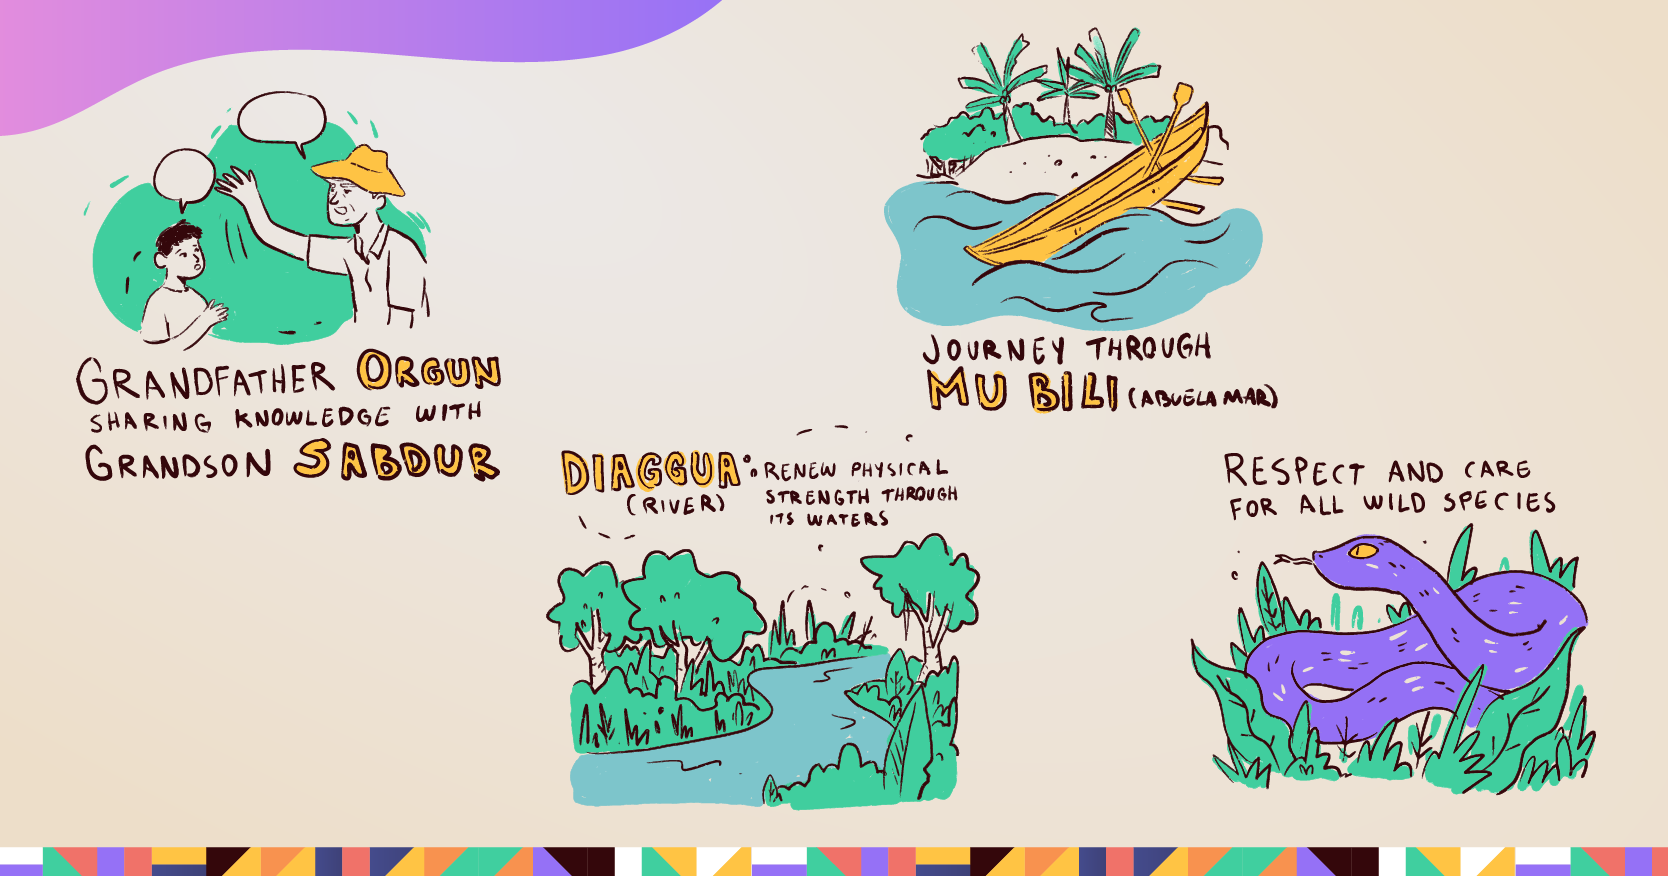 GRANDFATHER ORGUN
SHARING KNOWLEDGE WITH
GRANDSON SABDUR
JOURNEY THROUGH
MU BILI (ABUELA MAR)
DIAGGUA:
(RIVER)
RENEW PHYSICAL
STRENGTH THROUGH
ITS WATERS
RESPECT AND CARE
FOR ALL WILD SPECIES